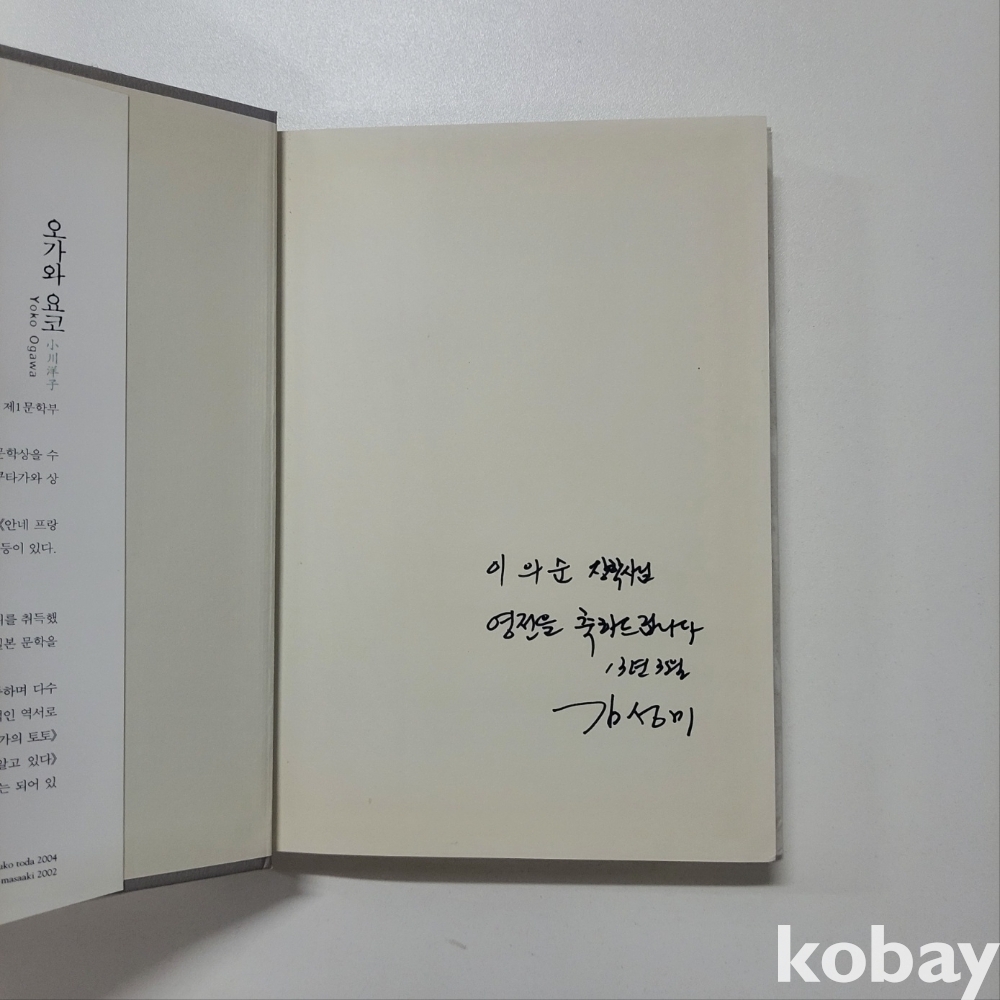 오가와 요코
小川洋子
Yoko Ogawa
제1문학부
문학상을 수
쿠타가와 상
《안네 프랑
등이 있다.
위를 취득했
일본 문학을
하며 다수
적인 역서로
가의 토토》
알고 있다》
는 되어 있
ako toda 2004
masaaki 2002
이의순 장학사님
영전을 축하드립니다
13년 3월
김성미
kobay